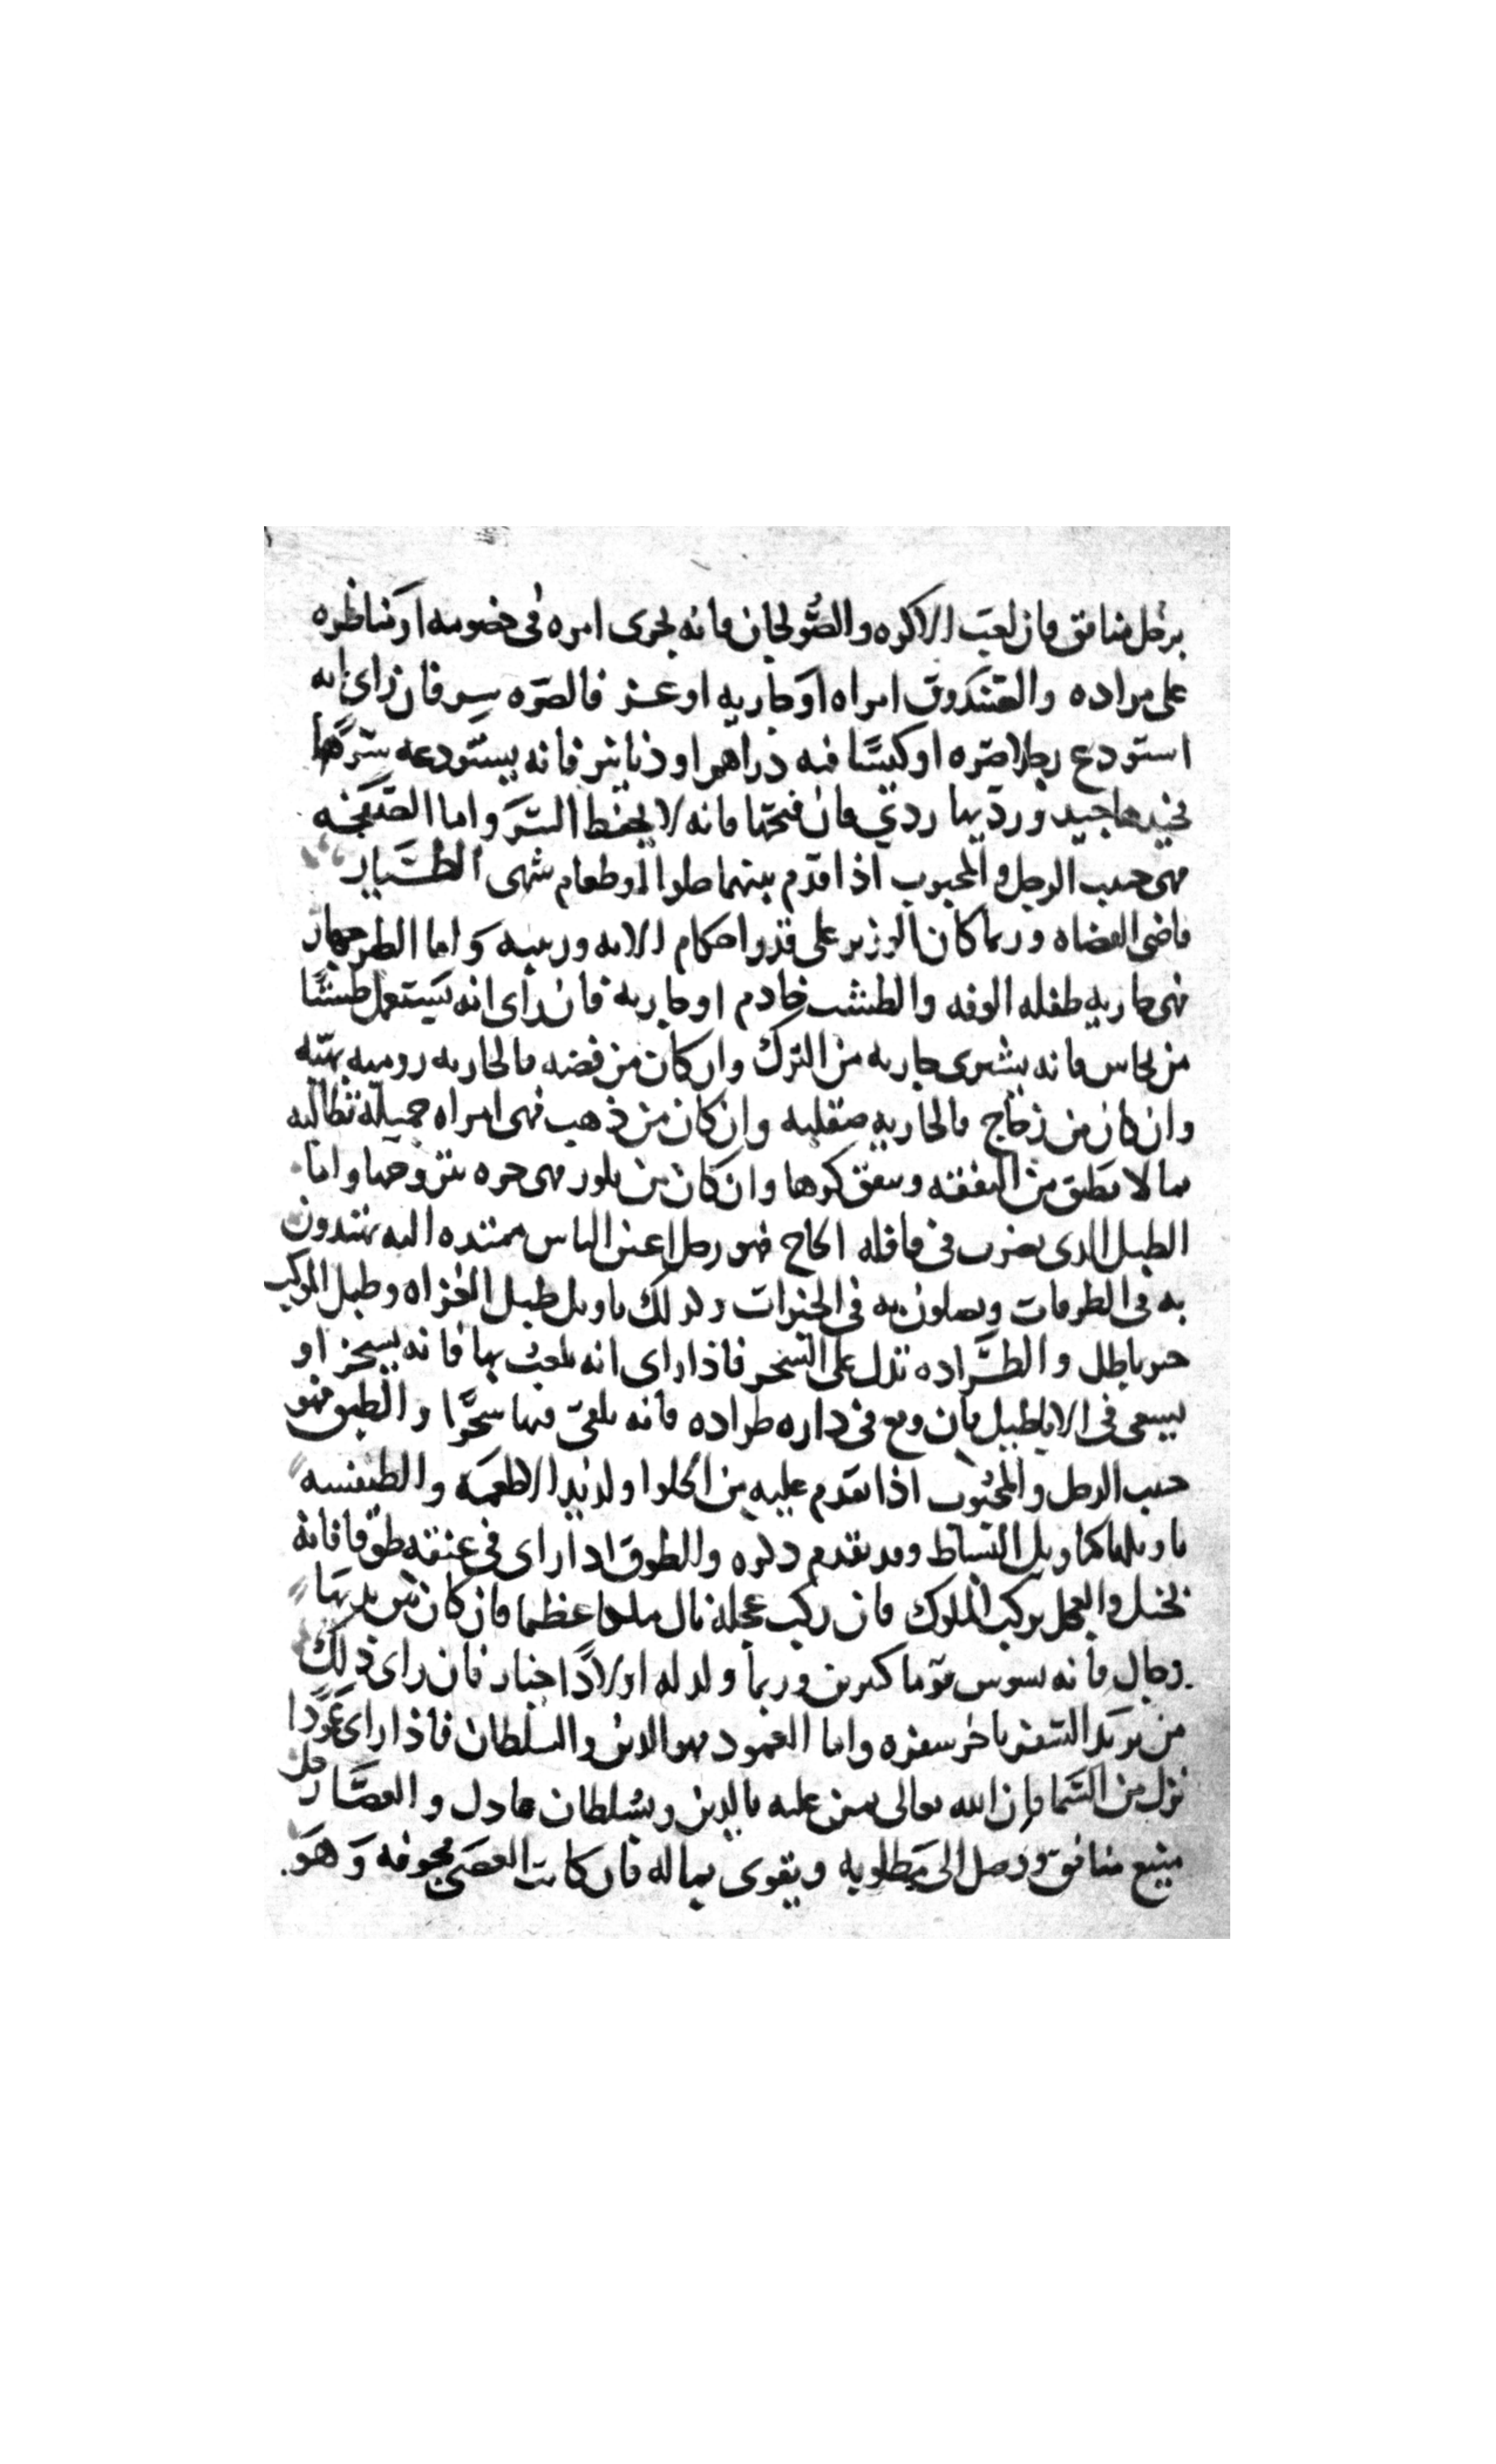 برجل منافق فان لعب الاكره والصُّولجان فانه يجرى امره فى خصومه او مناظره
على مراده والصندوق امراه او جاريه او عز فالصرّه سر فان راى انه
استودع رجلا صرّه او كيسًا فيه دراهم او دنانير فانه يستودعه سرًّا
فجيدها جيد ورديها ردى فان فتحها فانه لا يحفظ السرّ واما الصفحه
فهى حبيب الرجل والمحبوب اذا قدّم بينهما حلوا او طعام شهى الطيار
قاضى القضاه وربما كان الوزير على قدر احكام الايه ورتبته واما الطرجهار
فهى جاريه طفله الوفه والطشت خادم او جاريه فان راى انه يستعمل طشتًا
من نحاس فانه يشترى جاريه من الترك وان كان من فضه فالجاريه روميه
وان كان من زجاج فالجاريه صقلبيه وان كان من ذهب فهى امراه جميله تطالبه
بما لا يطيق من النفقه وينفق كرها وان كان من بلور فهى حره يتزوجها واما
الطبل الذى يضرب فى قافله الحاج فهو رجل اعين الناس ممتده اليه يهتدون
به فى الطرقات ويصلون به فى الخيرات وكذلك تاويل طبل الغزاه وطبل الموكب
خبر باطل والطرَّاده تدل على السحر فاذا راى انه يلعب بها فانه يسحر او
يسعى فى الاباطيل فان وقع فى داره طراده فانه يلقى فيها سحرًا والطبق فهو
حبيب الرجل والمحبوب اذا تقدم عليه من الحلوا ولذيذ الاطعمه والطنفسه
تاويلها كتاويل البساط وقد تقدم ذكره والطوق اذا راى فى عنقه طوقا فانه
بخيل والعجل مركب الملوك فان ركب عجله نال ملكا عظيما فان كان بين يديها
رجال فانه يسوس قوما كبرين وربما ولد له اولادًا خيار فان راى ذلك
من يريد السفر تاخر سفره واما العمود فهو الدين والسلطان فاذا راى عمودًا
نزل من السما فان الله تعالى يمن عليه بالدين وبسلطان عادل والعصَا رجل
منيع منافق ويصل الى مطلوبه ويقوى بماله فان كانت العصى مجوفه وهو